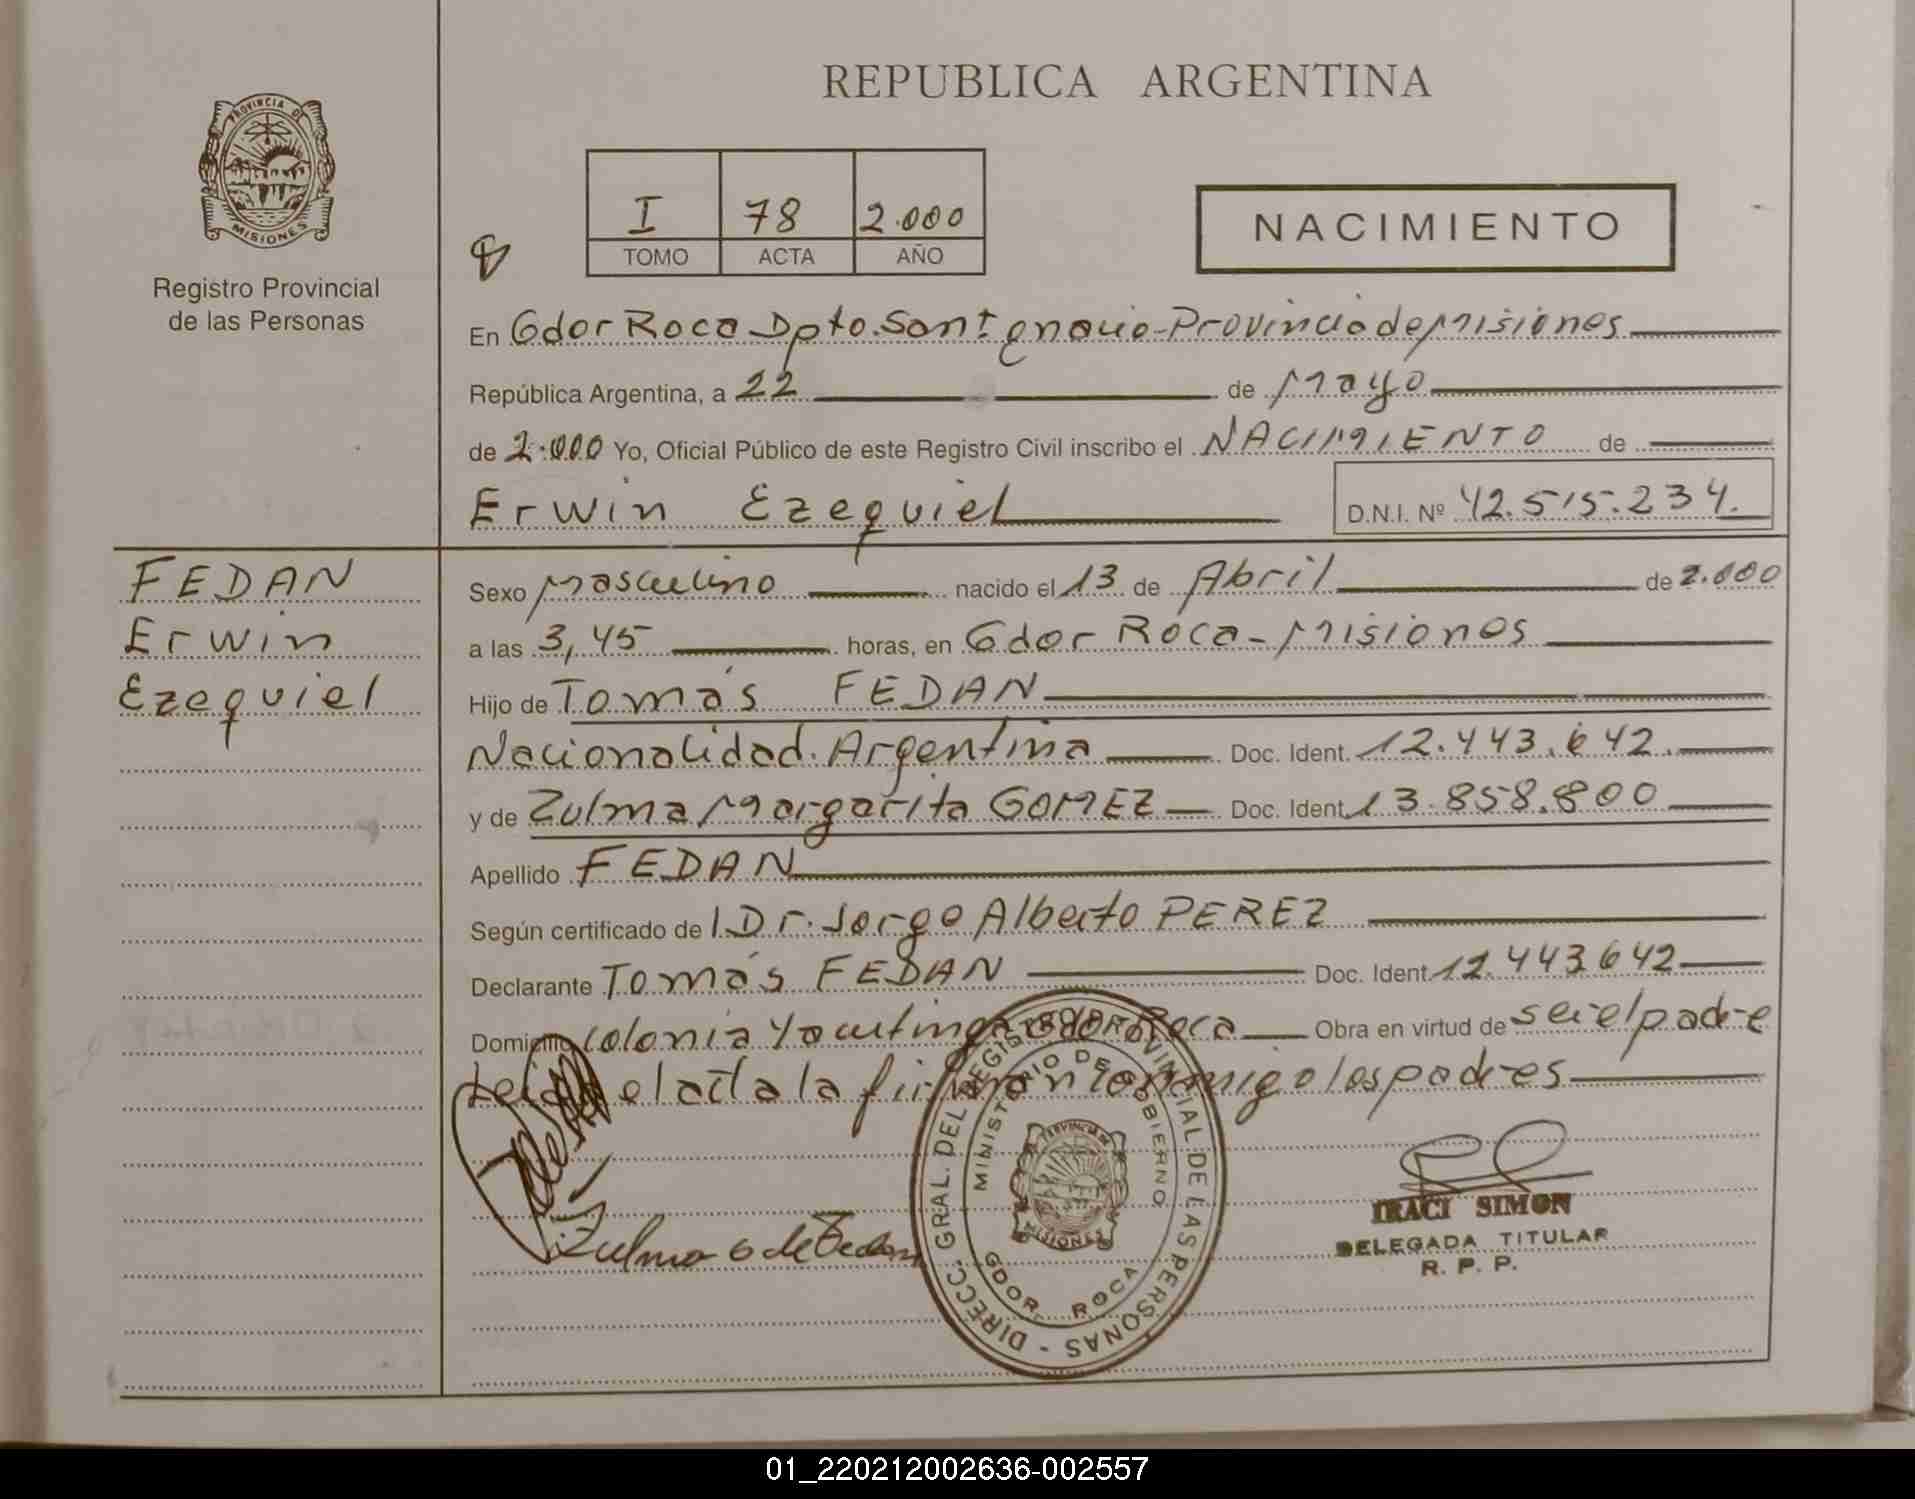 REPUBLICA ARGENTINA
PROVINCIA DE
MISIONES
Registro Provincial
de las Personas
I 78 2.000
TOMO ACTA AÑO
NACIMIENTO
En Gdor Roca Dpto. San Ignacio-Provincia de Misiones
República Argentina, a 22 de Mayo
de 2.000 Yo, Oficial Público de este Registro Civil inscribo el NACIMIENTO de
Erwin Ezequiel D.N.I. Nº 42.515.234.
FEDAN
Erwin
Ezequiel
Sexo Masculino nacido el 13 de Abril de 2.000
a las 3,45 horas, en Gdor Roca-Misiones
Hijo de Tomás FEDAN
Nacionalidad Argentina Doc. Ident. 12.443.642
y de Zulma Margarita GOMEZ Doc. Ident. 13.858.800
Apellido FEDAN
Según certificado de Dr. Jorge Alberto PEREZ
Declarante Tomás FEDAN Doc. Ident. 12.443642
Domicilio Colonia Yacutinga Gdor Roca Obra en virtud de ser el padre
Leida el acta la firman conmigo los padres
Zulma G de Fedan
DIRECC. GRAL. DEL REGISTRO PROVINCIAL DE LAS PERSONAS -
MINISTERIO DE GOBIERNO
PROVINCIA DE
MISIONES
GDOR. ROCA
IRACI SIMON
DELEGADA TITULAR
R. P. P.
01_220212002636-002557